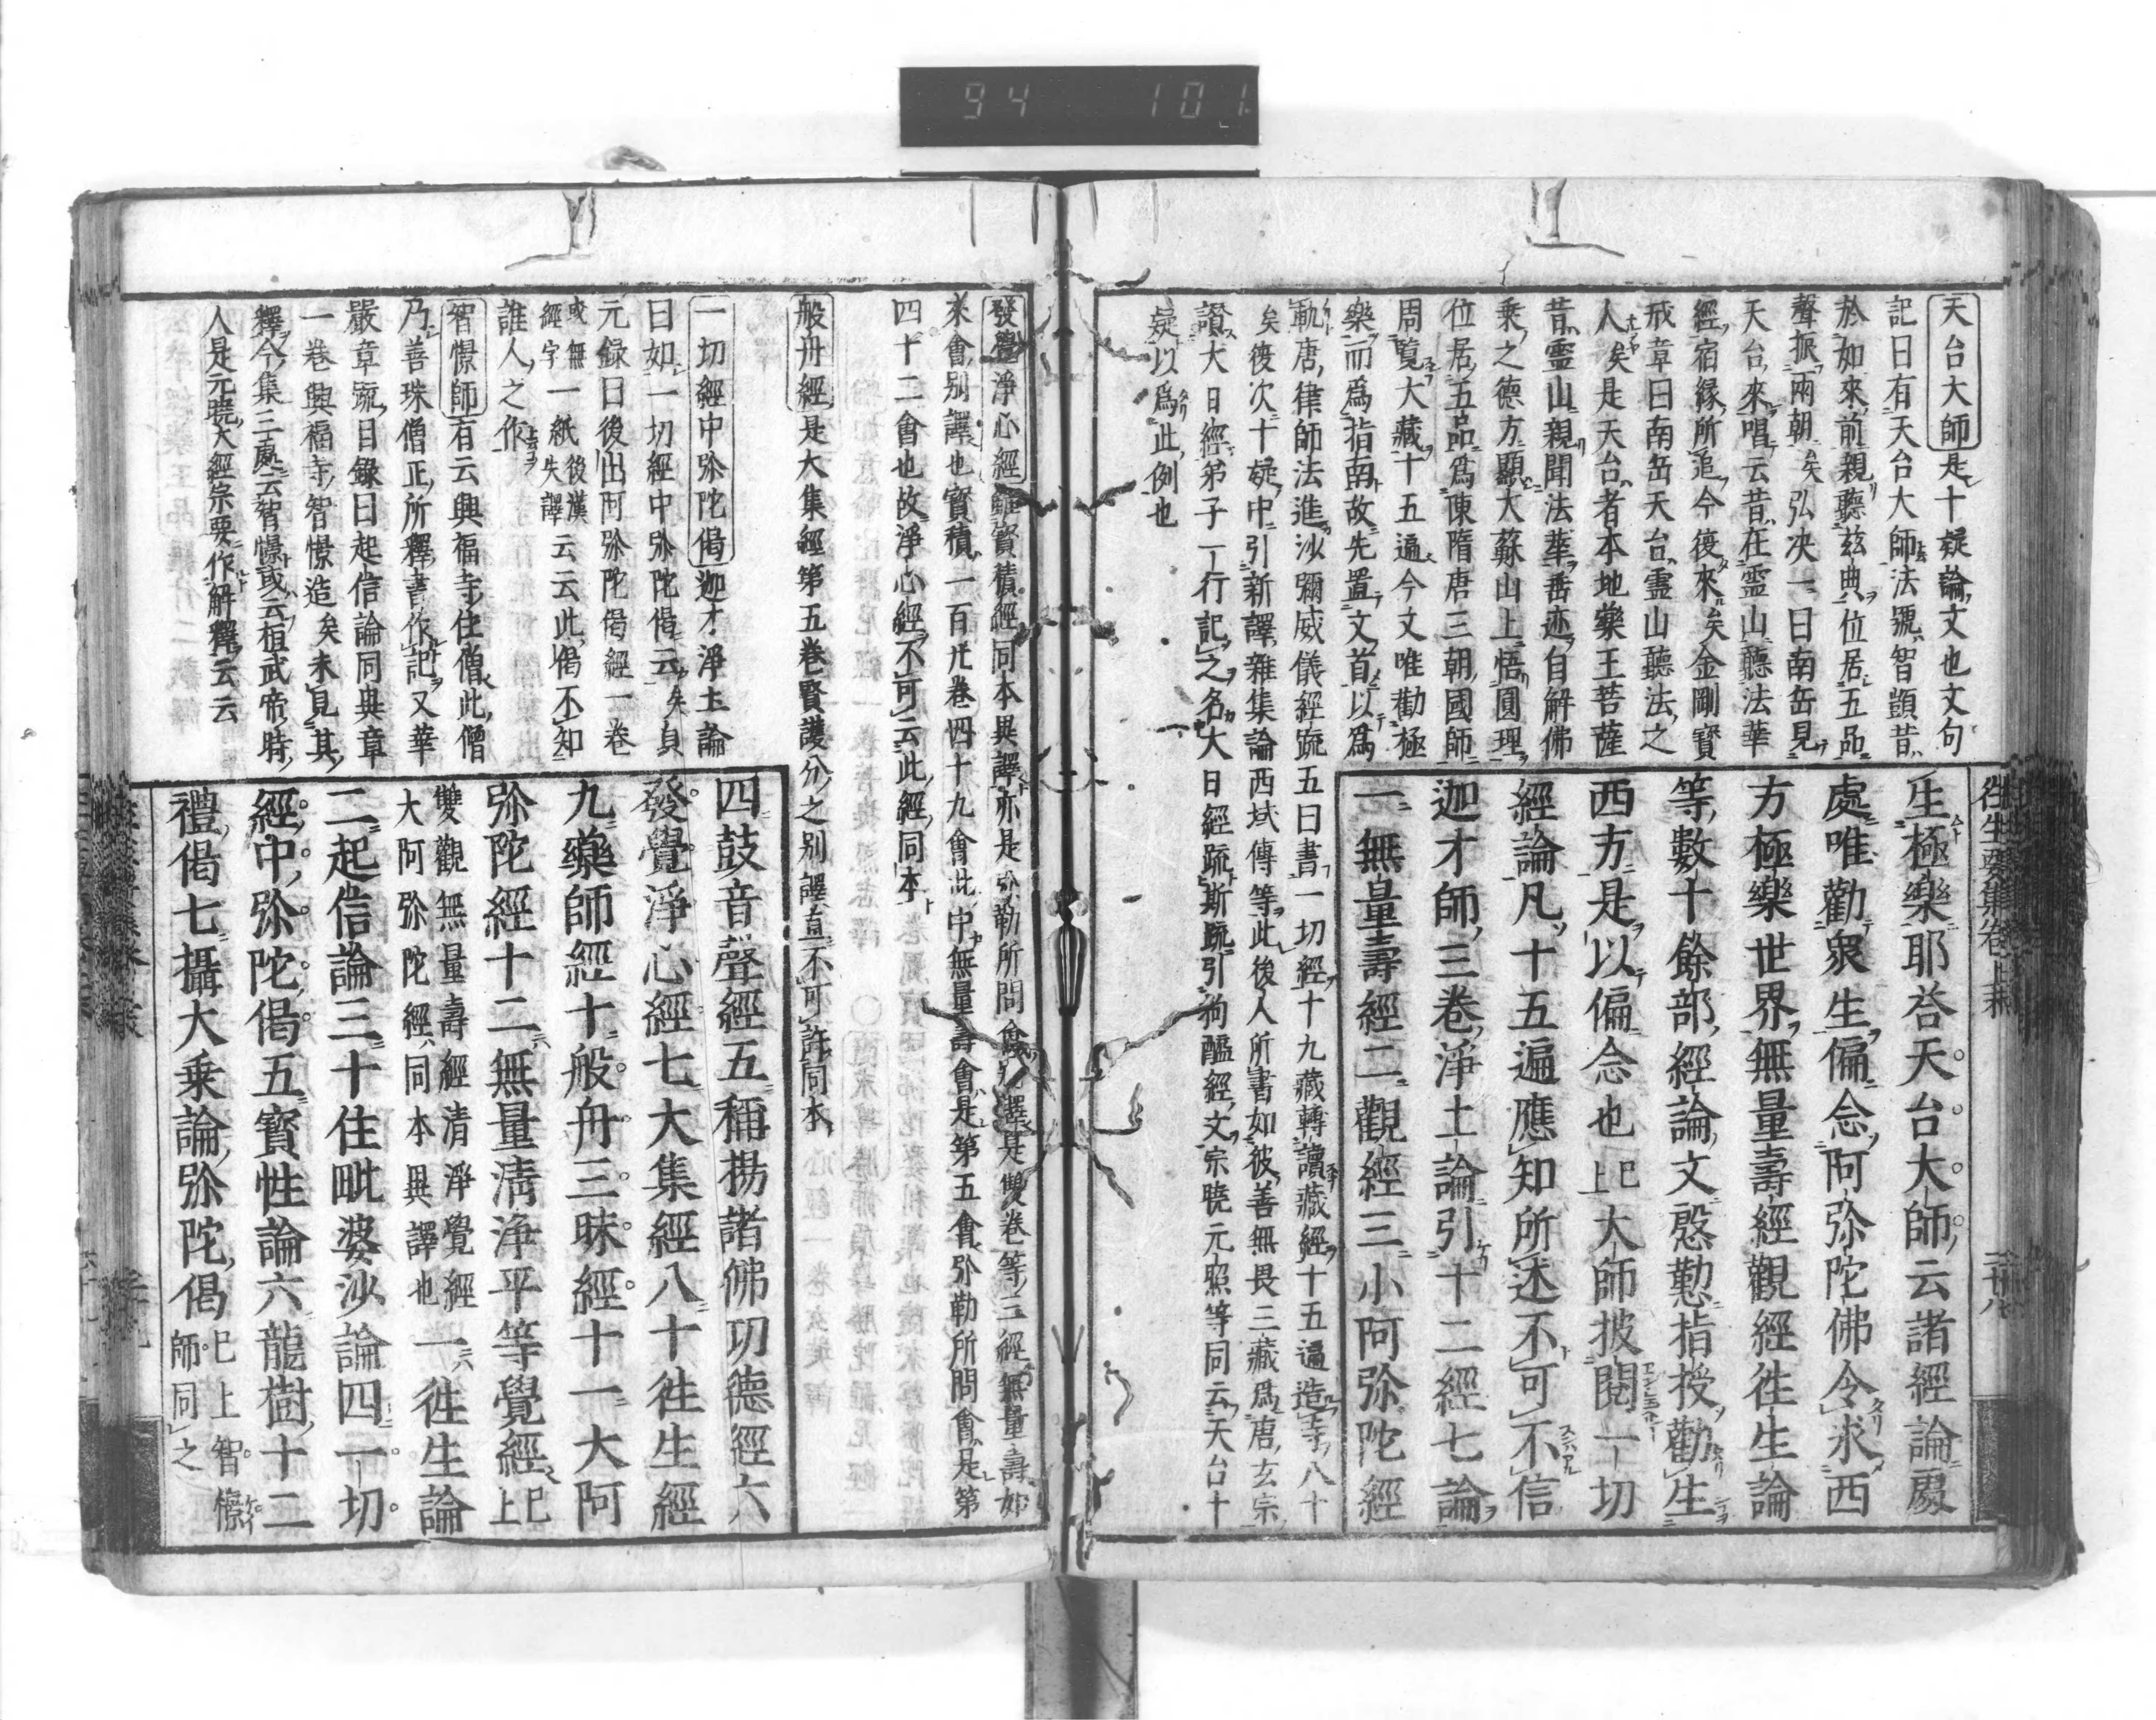 94 101
往生要集卷上末
天台大師是十疑論文也文句
記曰有天台大師法號智顗昔
於如來前親聽兹典位居五品
聲振兩朝矣弘决一曰南岳見
天台來唱云昔在靈山聽法華
經宿緣所追今復來矣金剛寳
戒章曰南岳天台靈山聽法之
人矣是天台者本地藥王菩薩
昔靈山親聞法華垂迹自解佛
乘之德方顯大蘇山上悟圓理
位居五品爲陳隋唐三朝國師
周覽大藏十五遍今文唯勸極
樂而爲指南故先置文首以爲
軌唐律師法進沙彌威儀經疏五曰書一切經十九藏轉讀藏經十五遍造寺八十
矣後次十疑中引新譯雜集論西域傳等此後人所書如彼善無畏三藏爲唐玄宗
讚大日經弟子一行記之名大日經疏斯疏引狗醯經文宗曉元照等同云天台十
疑以爲此例也
生極樂耶答天台大師云諸經論處
處唯勸衆生偏念阿弥陀佛令求西
方極樂世界無量壽經觀經徃生論
等數十餘部經論文慇懃指授勸生
西方是以偏念也已上大師披閱一切
經論凡十五遍應知所述不可不信
迦才師三卷淨土論引十二經七論
一無量壽經二觀經三小阿弥陀經
發覺淨心經寳積經同本異譯亦是弥勒所問會
來會別譯也寳積一百卄卷四十九會此中無量壽會是第五會弥勒所問會是第
四十二會也故淨心經不可云此經同本
般舟經是大集經第五卷賢護分之別譯直不可許同本
一切經中弥陀偈迦才淨土論
曰如一切經中弥陀偈云矣貞
元錄曰後出阿弥陀偈經一卷
或無經字一紙後漢失譯云云此偈不知
誰人之作
智憬師有云興福寺住僧此僧
乃善珠僧正所釋書作記又華
嚴章疏目錄曰起信論同異章
一卷興福寺智憬造矣未見其
釋今集三處云智憬或云桓武帝時
人是元曉大經宗要作解釋云云
四鼓音聲經五稱揚諸佛功德經六
發覺淨心經七大集經八十徃生經
九藥師經十般舟三昧經十一大阿
弥陀經十二無量清淨平等覺經已上
雙觀無量壽經清淨覺經
大阿弥陀經同本異譯也一徃生論
二起信論三十住毗婆沙論四一切
經中弥陀偈五寳性論六龍樹十二
禮偈七攝大乘論弥陀偈已上智憬師同之